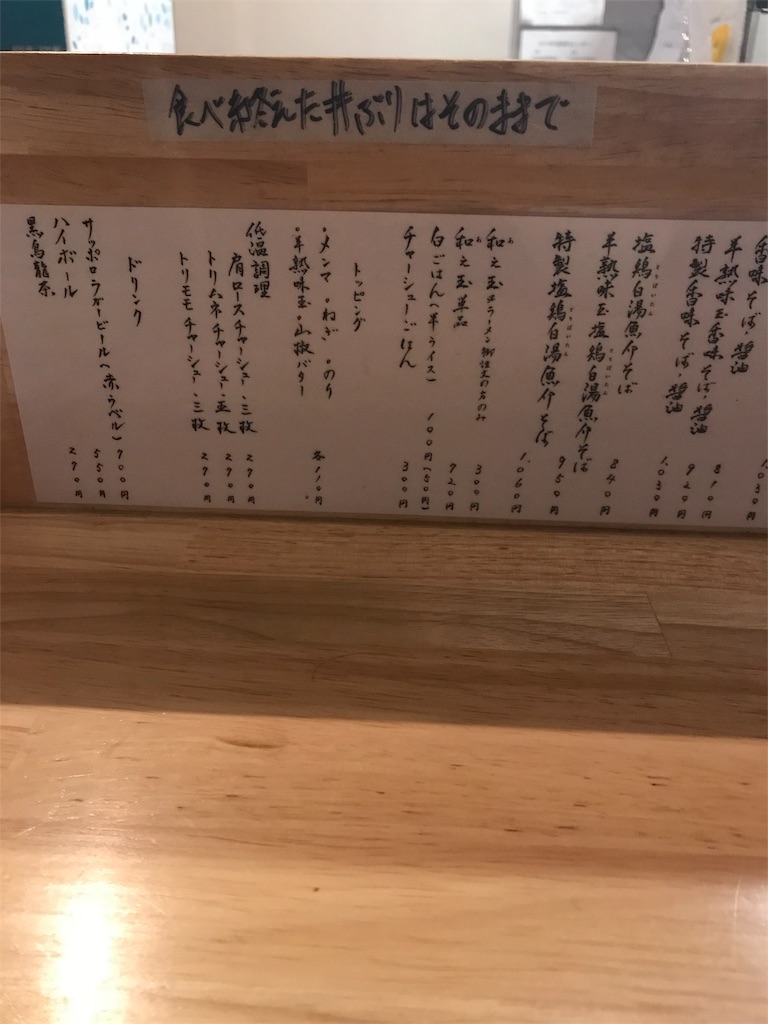 食べ終えた丼ぶりはそのままで
1,030円
香味そば・醤油 810円
半熟味玉香味そば・醤油 920円
特製香味そば・醤油 1,030円
塩鶏白湯魚介そば 840円
半熟味玉塩鶏白湯魚介そば 950円
特製塩鶏白湯魚介そば 1,060円
和え玉※ラーメン御注文の方のみ 300円
和え玉単品
白ごはん(半ライス) 100円(50円)
チャーシューごはん 300円
トッピング
・メンマ・ねぎ・のり
・半熟味玉・山椒バター 各110円
低温調理
肩ロースチャーシュー・三枚 290円
トリムネチャーシュー・五枚 290円
トリモモチャーシュー・三枚 290円
ドリンク
サッポロラガービール(赤ラベル)
ハイボール 550円
黒烏龍茶 290円